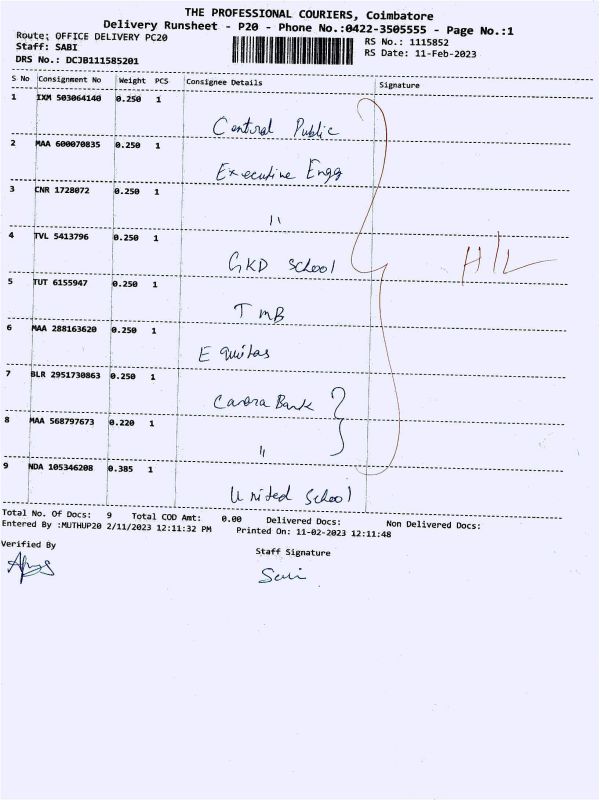 THE PROFESSIONAL COURIERS, Coimbatore
Delivery Runsheet - P20 - Phone No.:0422-3505555 - Page No.:1
Route: OFFICE DELIVERY PC20
RS No.: 1115852
Staff: SABI
RS Date: 11-Feb-2023
DRS No.: DCJB111585201
S No Consignment No Weight PCS Consignee Details Signature
1 IXM 503064140 0.250 1
Central Public
2 MAA 600070835 0.250 1
Executive Engg
3 CNR 1728072 0.250 1
"
4 TVL 5413796 0.250 1
GKD School
H/L
5 TUT 6155947 0.250 1
TMB
6 MAA 288163620 0.250 1
Equitas
7 BLR 2951730863 0.250 1
Canara Bank
8 MAA 568797673 0.220 1
"
9 NDA 105346208 0.385 1
United School
Total No. Of Docs: 9 Total COD Amt: 0.00 Delivered Docs: Non Delivered Docs:
Entered By :MUTHUP20 2/11/2023 12:11:32 PM Printed On: 11-02-2023 12:11:48
Verified By
Staff Signature